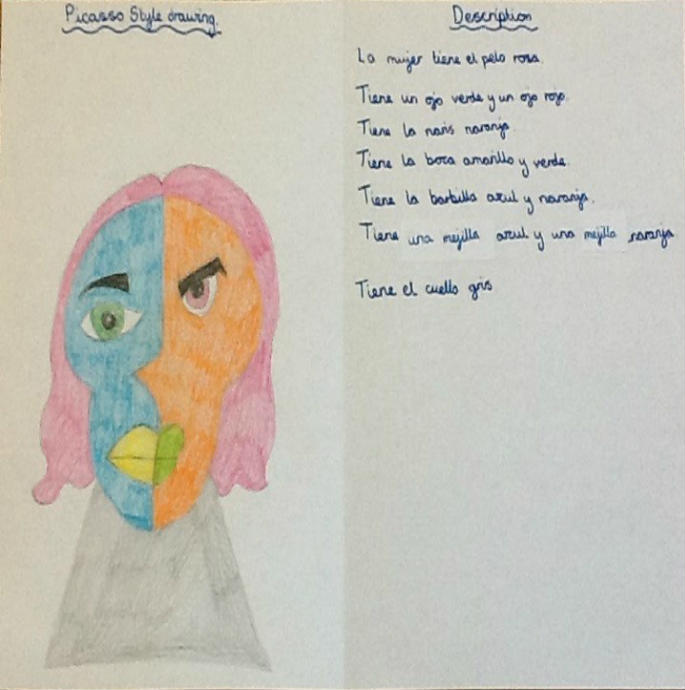 Picasso Style drawing.
Description
La mujer tiene el pelo rosa.
Tiene un ojo verde y un ojo rojo.
Tiene la naris naranja.
Tiene la boca amarillo y verde.
Tiene la barbilla azul y naranja.
Tiene una mejilla azul y una mejilla naranja
Tiene el cuello gris